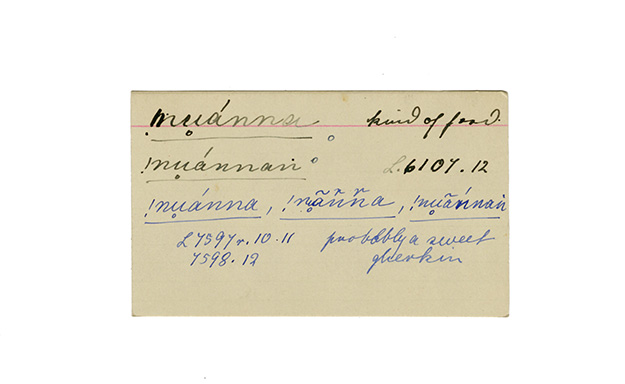 !nu̥ánna kind of food.
!nu̥ánnaṅ L. 6107. 12
!nu̥ánna, !nu̥ãn̆n̆a, !nu̥ãńnaṅ
L 7597 r. 10. 11 probabbly a sweet
7598. 12 gherkin